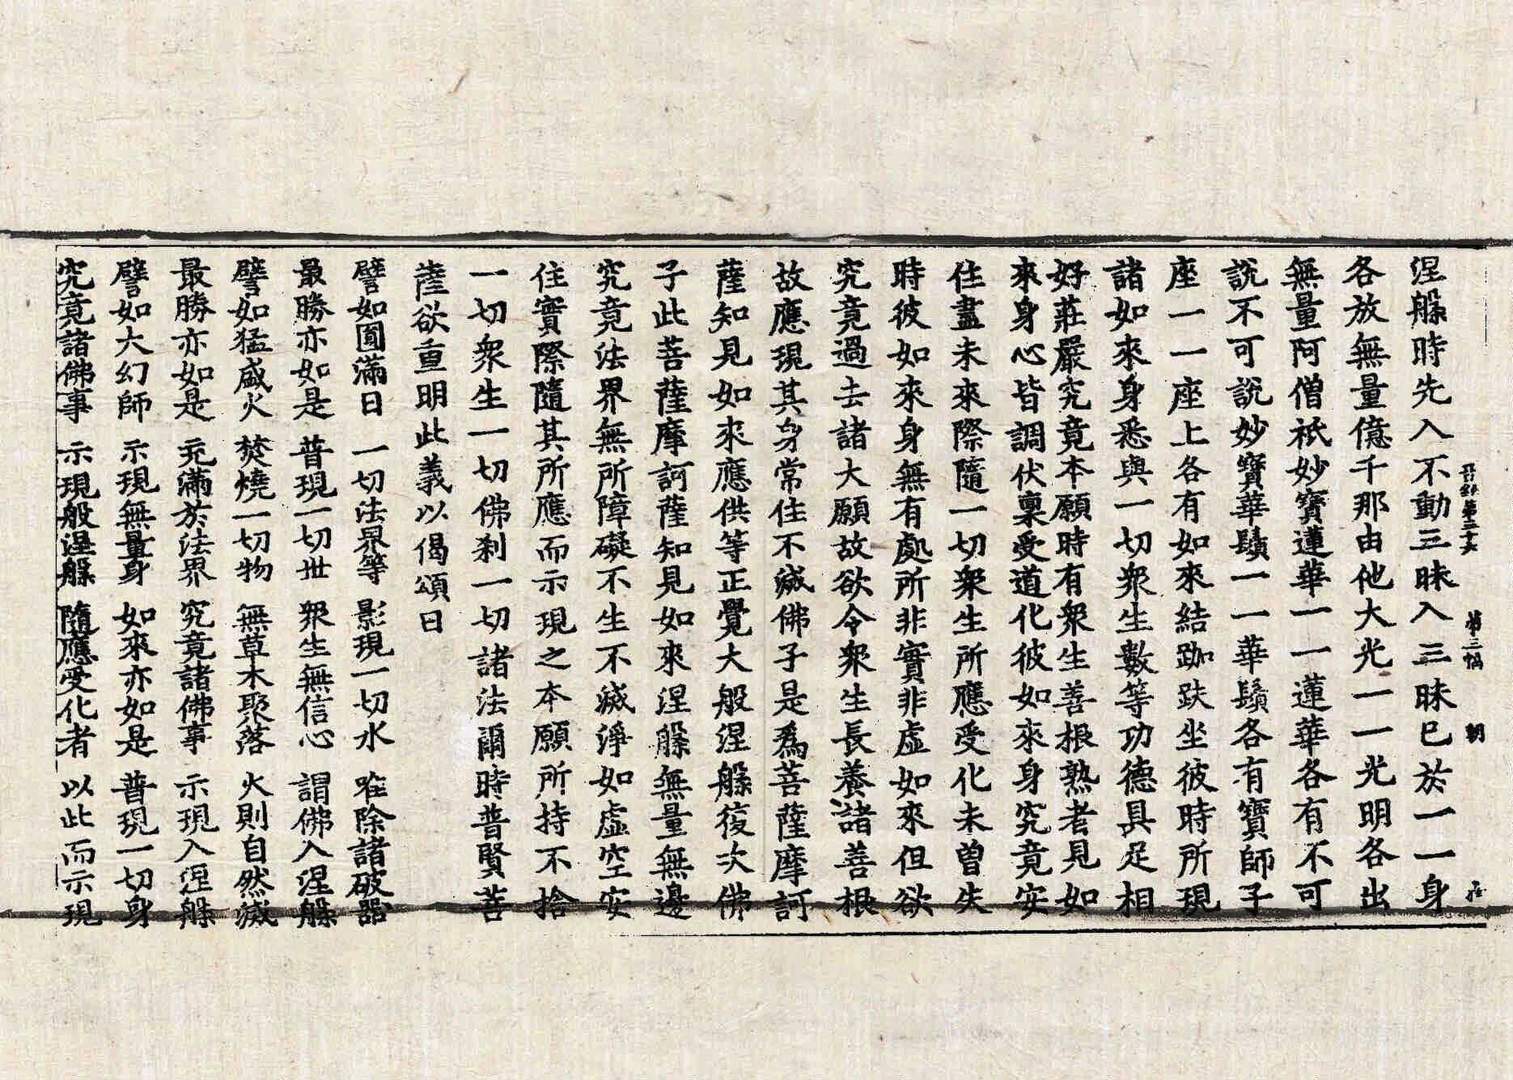 晉經第三十六　第三幅　朝　在
涅槃時先入不動三昧入三昧已於一一身
各放無量億千那由他大光一一光明各出
無量阿僧祇妙寶蓮華一一蓮華各有不可
說不可說妙寶華鬚一一華鬚各有寶師子
座一一座上各有如來結跏趺坐彼時所現
諸如來身悉與一切衆生數等功德具足相
好莊嚴究竟本願時有衆生善根熟者見如
來身心皆調伏稟受道化彼如來身究竟安
住盡未來際隨一切衆生所應受化未曽失
時彼如來身無有處所非實非虛如來但欲
究竟過去諸大願故欲令衆生長養諸善根
故應現其身常住不滅佛子是爲菩薩摩訶
薩知見如來應供等正覺大般涅槃復次佛
子此菩薩摩訶薩知見如來涅槃無量無邊
究竟法界無所障礙不生不滅淨如虛空安
住實際隨其所應而示現之本願所持不捨
一切衆生一切佛刹一切諸法爾時普賢菩
薩欲重明此義以偈頌曰
譬如圓滿日　一切法界等　影現一切水　唯除諸破器
最勝亦如是　普現一切世　衆生無信心　謂佛入涅槃
譬如猛盛火　焚燒一切物　無草木聚落　火則自然滅
最勝亦如是　充滿於法界　究竟諸佛事　示現入涅槃
譬如大幻師　示現無量身　如來亦如是　普現一切身
究竟諸佛事　示現般涅槃　隨應受化者　以此而示現